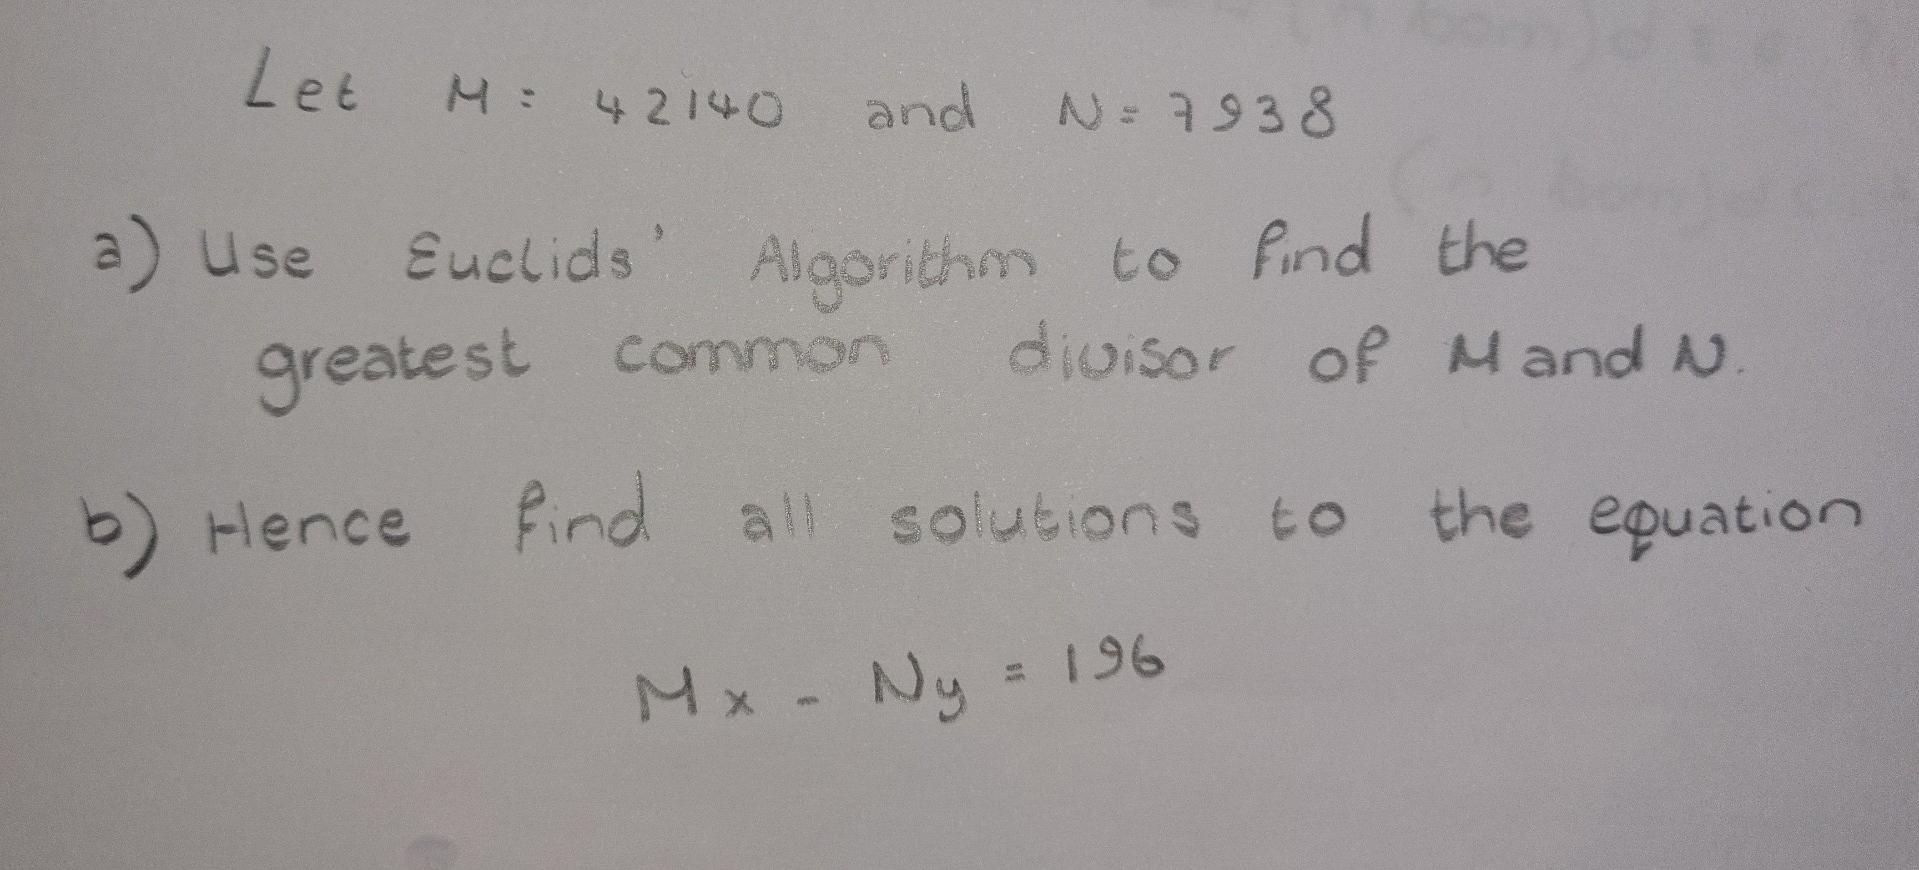 Let M = 42140 and N = 7938
a) Use Euclids' Algorithm to find the
greatest common divisor of M and N.
b) Hence find all solutions to the equation
Mx - Ny = 196